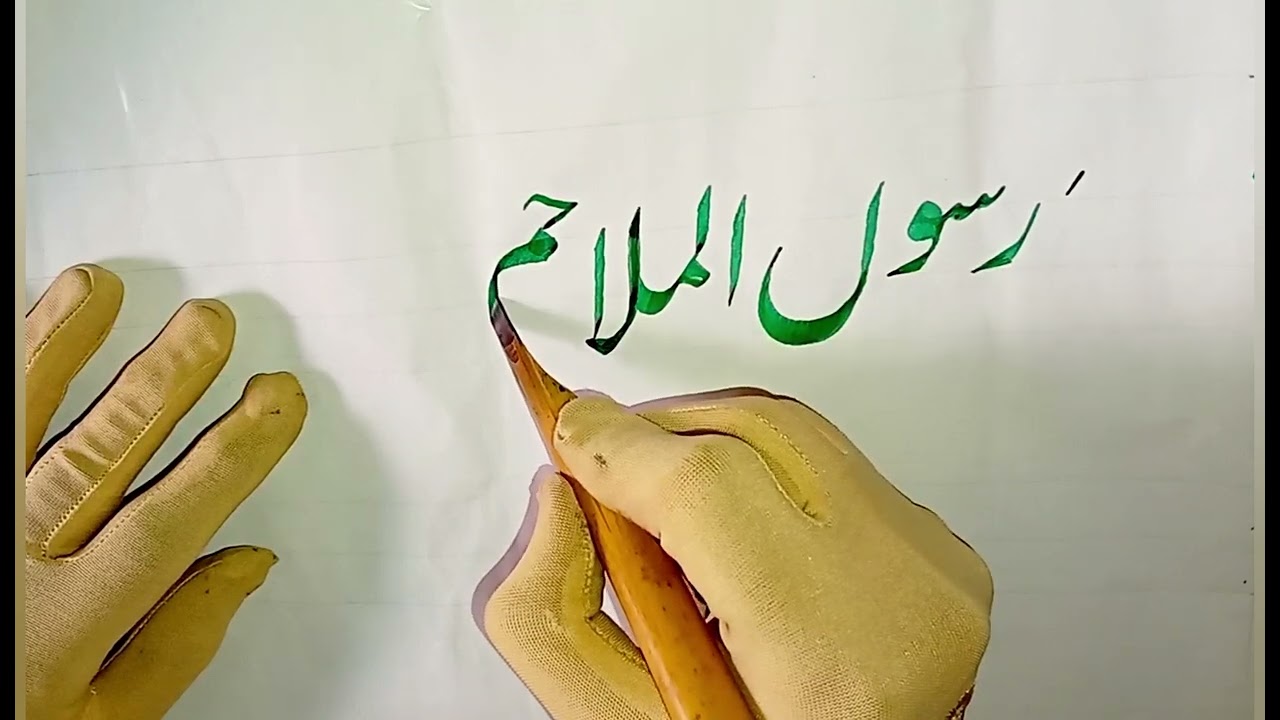 رَسول الملاحم